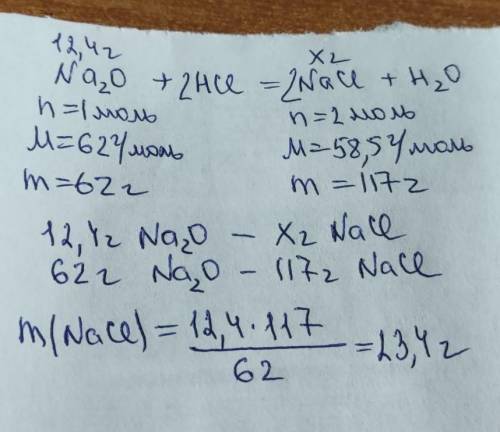 12,4г хг
Na₂O + 2HCl = 2NaCl + H₂O
n=1моль n=2моль
M=62г/моль M=58,5г/моль
m=62г m=117г
12,4г Na₂O - хг NaCl
62г Na₂O - 117г NaCl
m(NaCl) = 12,4·117 / 62 = 23,4г